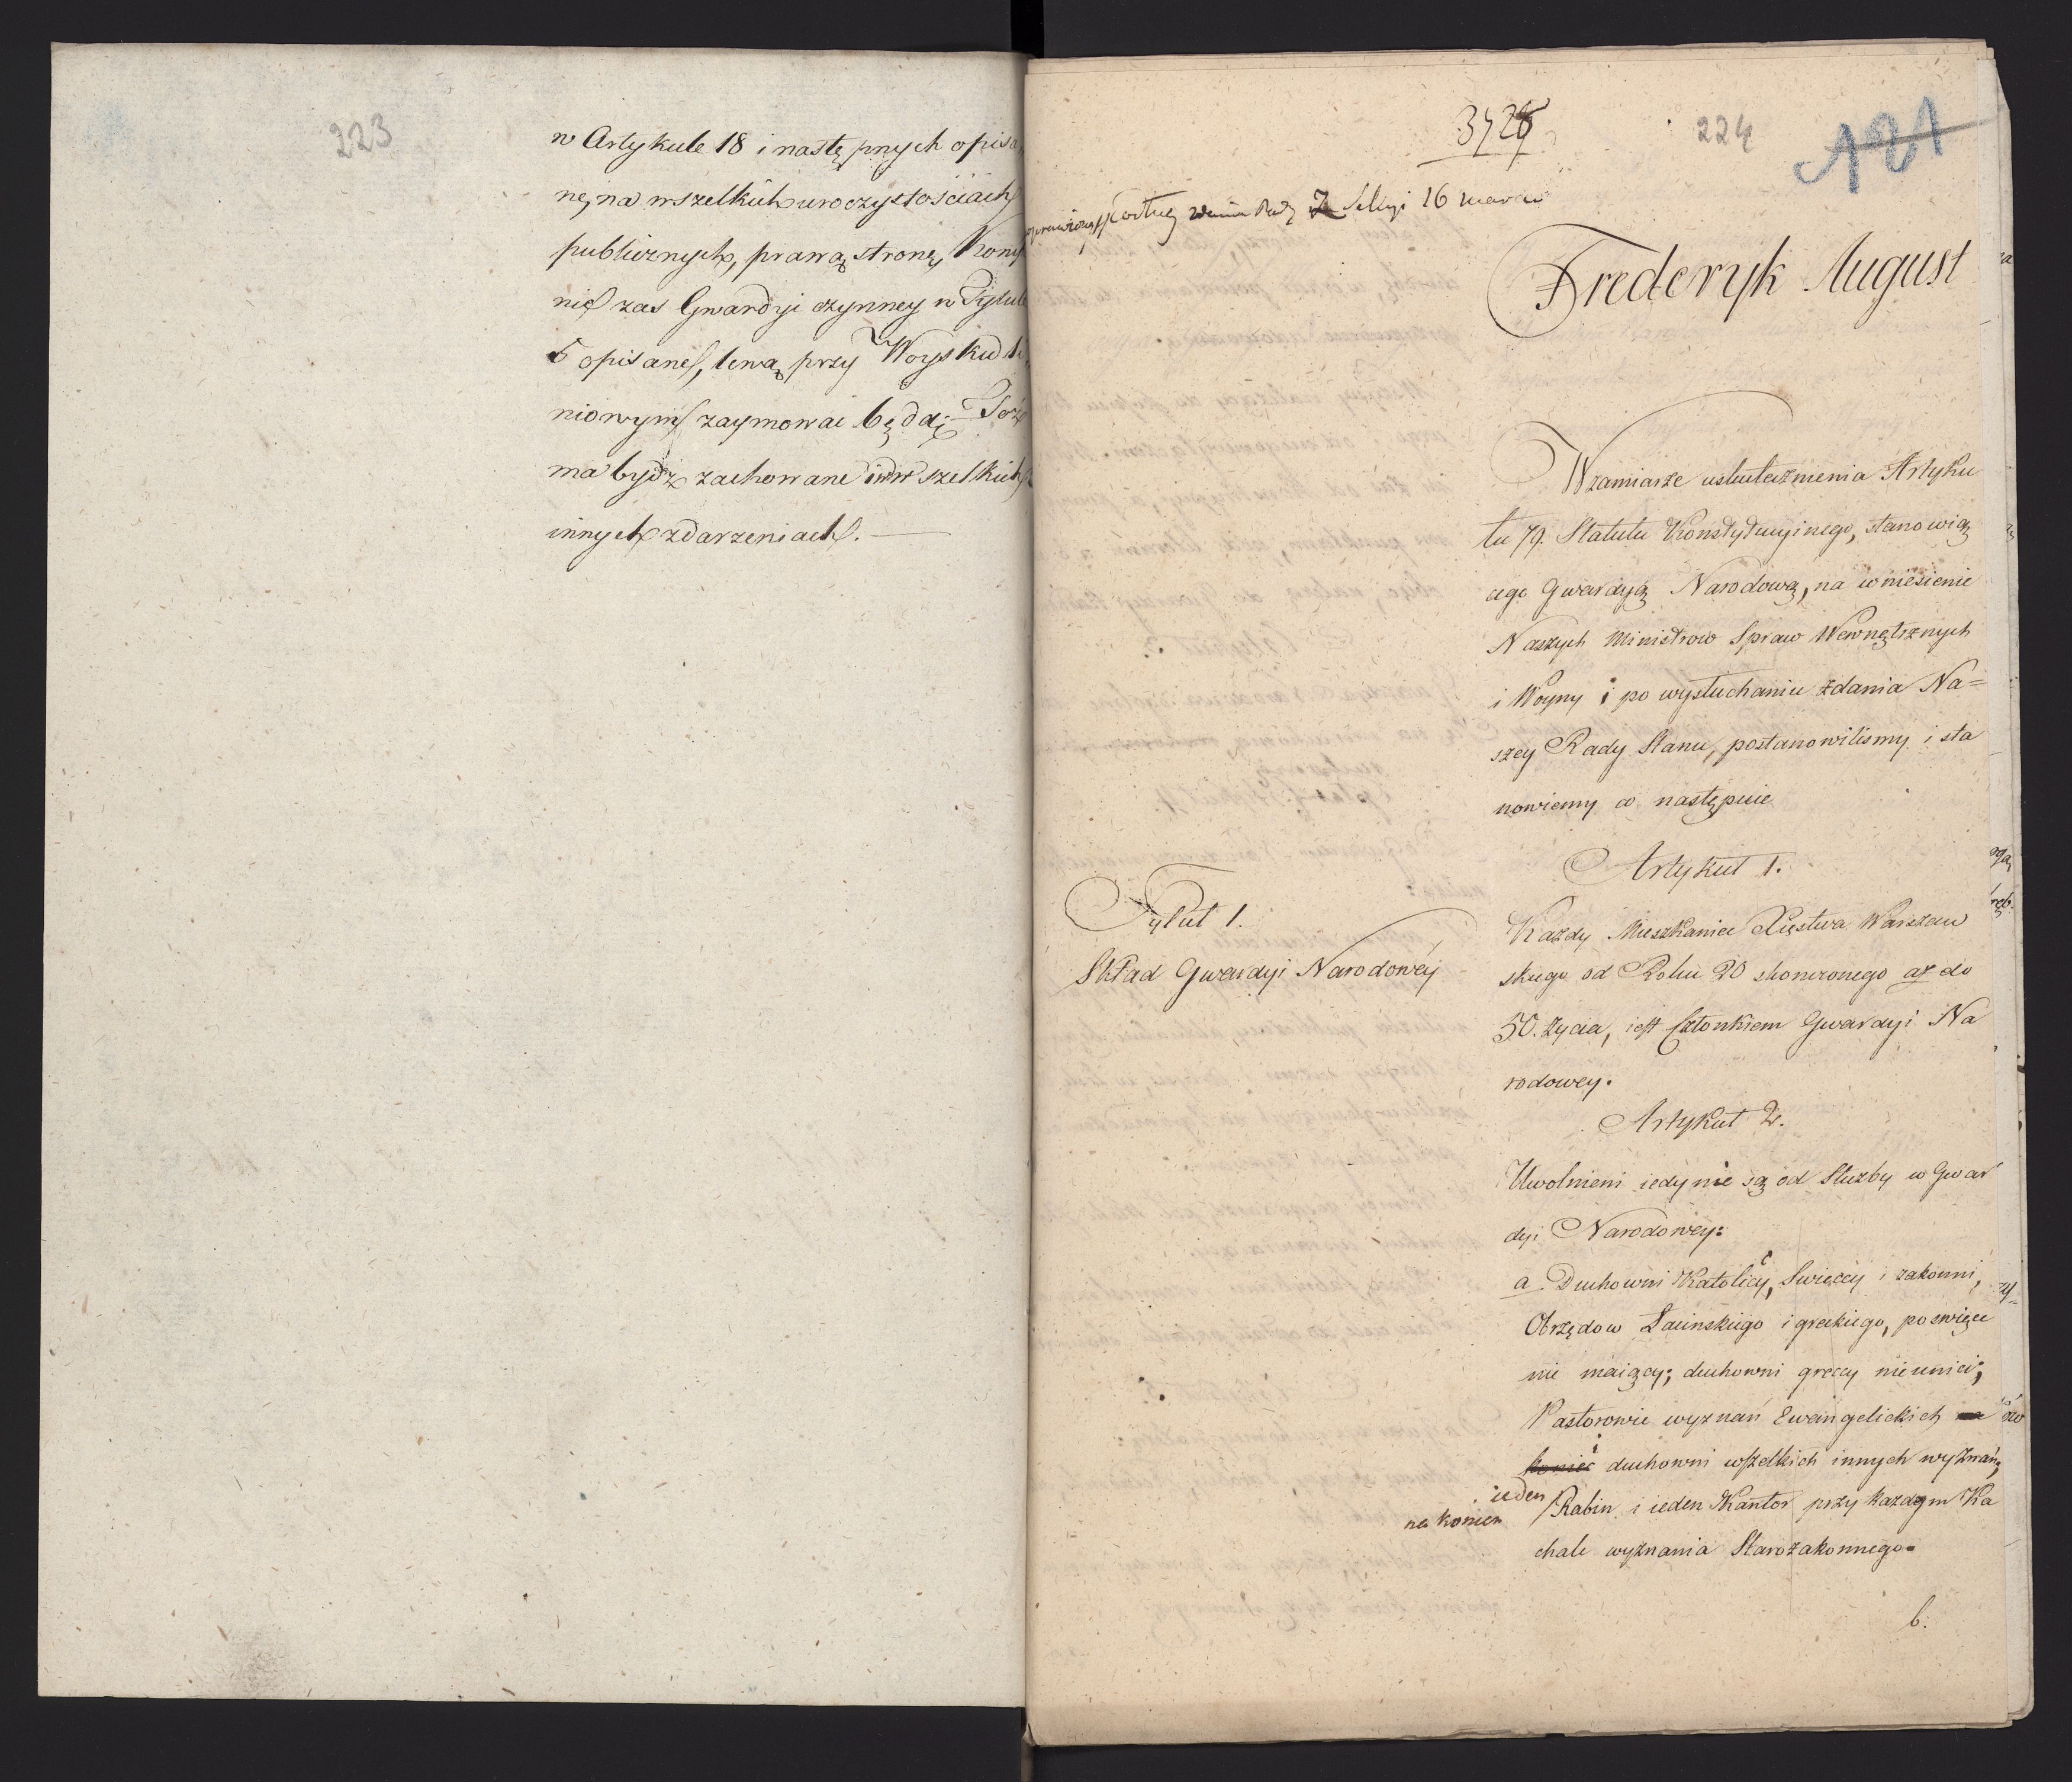 223
w Artykule 18 i następnych opisa
ne, na wszelkich uroczystościach
publicznych, prawą stronę, Komp
nie zas Gwardyi czynney w Tytule
5 opisane, lewą przy Woysku li
niowym zaymowai będą; Toż
ma bydź zachowane i w wszelkich
innych zdarzeniach. —
224
121
poprawiony podług zdania Rady Z Sessyi 16 marca
Frederyk August
W zamiarze uskutecznienia Artyku
łu 79. Statutu Konstytucyinego, stanowią
cego Gwardyą Narodową, na wniesienie
Naszych Ministrow Spraw Wewnętrznych
i Woyny i po wysłuchaniu zdania Na=
szey Rady Stanu, postanowilismy i sta
nowiemy co następuie
Tytuł 1.
Skład Gwardyi Narodowey
Artykuł 1.
Każdy Mieszkaniec Xięstwa Warszaw
skiego od Roku 20 skonczonego aż do
50. życia, iest Członkiem Gwardyi Na
rodowey.
Artykuł 2.
Uwolnieni iedynie są od Służby w Gwar
dyi Narodowey:
a Duchowni Katolicy, Swieccy i zakonni,
Obrzędow Łacinskiego i greckiego, poswięce
nie maiący; duchowni greccy nieunici;
Pastorowie wyznań Ewangelickich na
koniec i duchowni wszelkich innych wyznań;
na koniec ieden Rabin i ieden Kantor przy każdym Ka
chale wyznania Starozakonnego.
b.